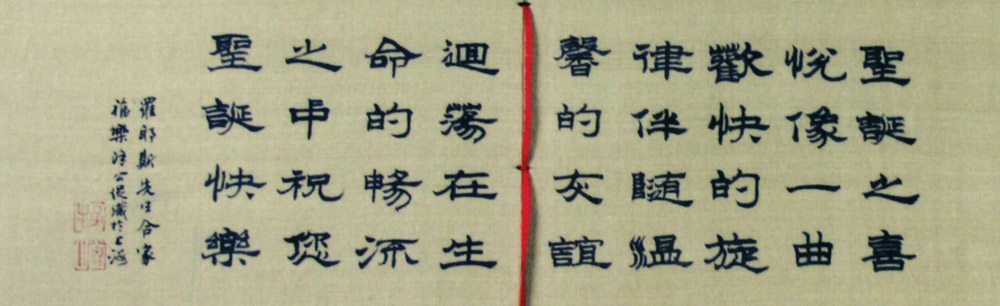 聖誕之喜
悅像一曲
歡快的旋
律伴隨溫
馨的友誼
迴蕩在生
命的暢流
之中祝您
聖誕快樂
羅耶斯先生合家
福樂於上海